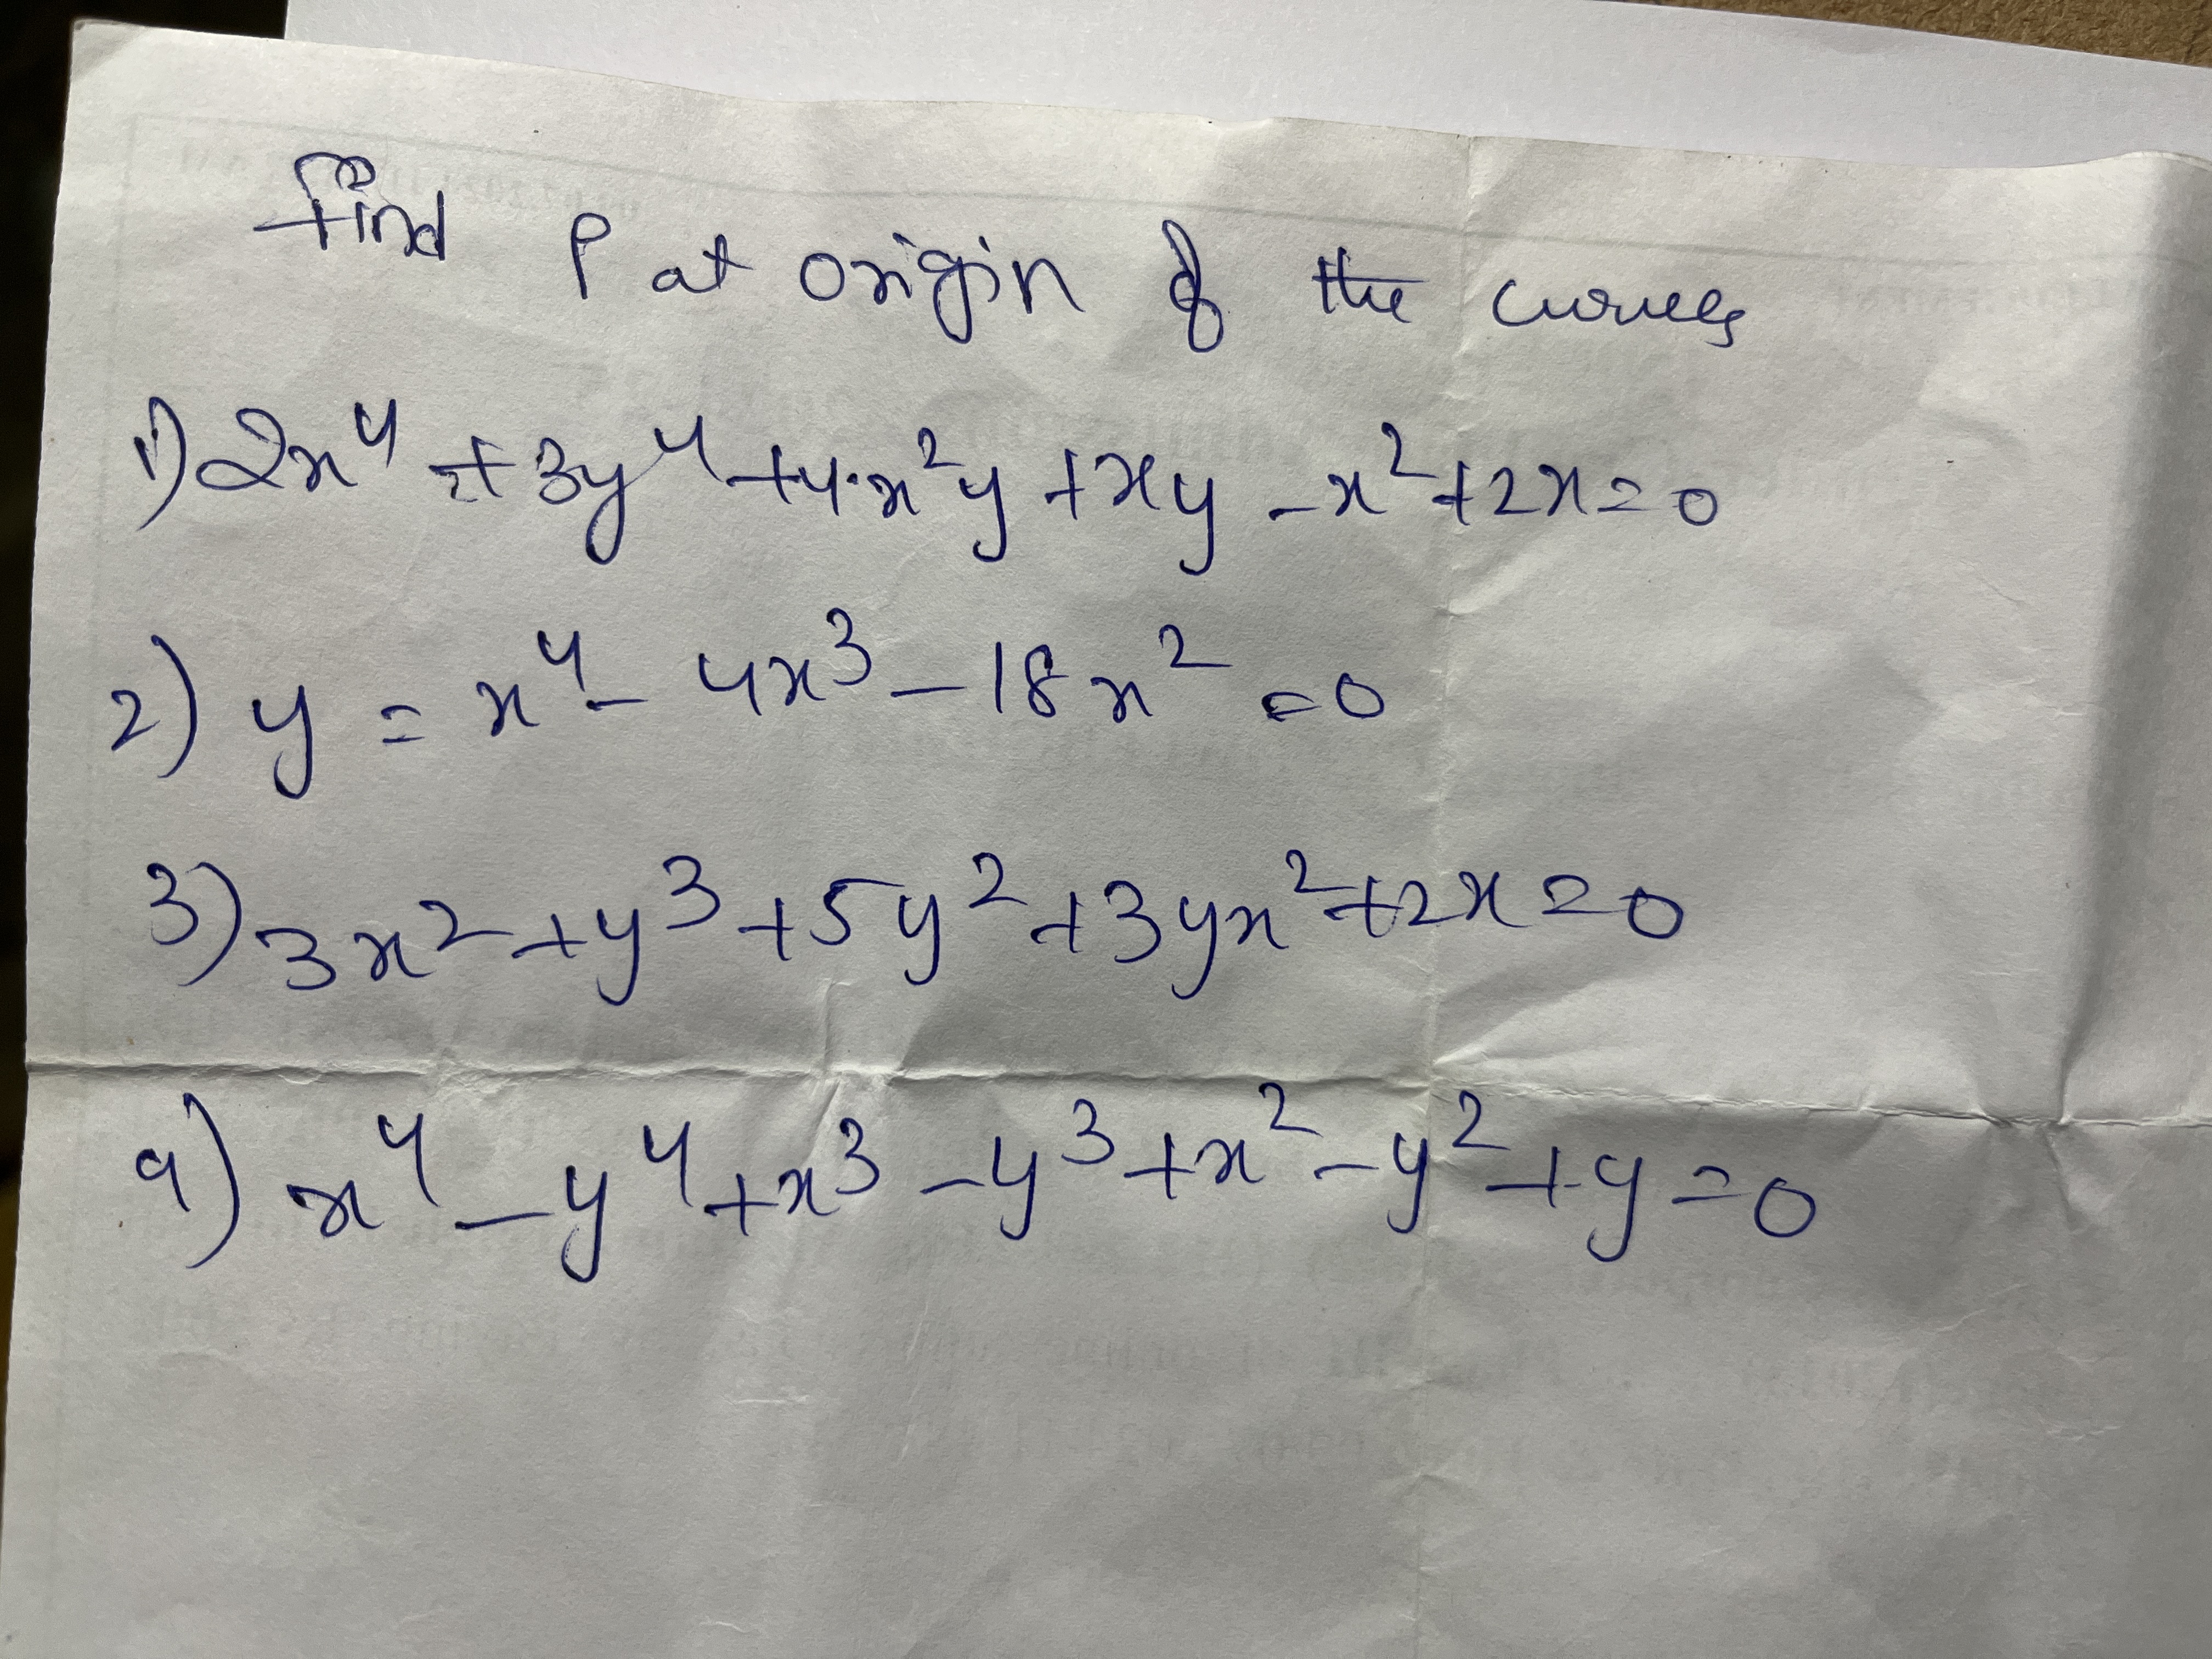 find ρ at origin of the curves
1) 2x⁴ + 3y⁴ + 4x²y + xy - x² + 2x = 0
2) y = x⁴ - 4x³ - 18x² = 0
3) 3x² + y³ + 5y² + 3yx² + 2x = 0
4) x⁴ - y⁴ + x³ - y³ + x² - y² + y = 0